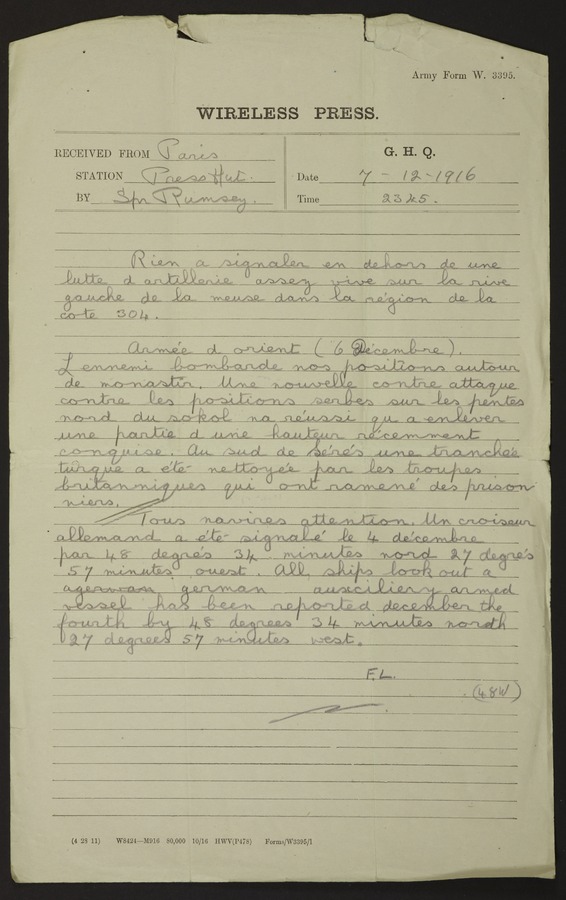 Army Form W. 3395.
WIRELESS PRESS.
RECEIVED FROM Paris
STATION Press Hut.
BY Spr Rumsey.
G. H. Q.
Date 7-12-1916
Time 2345.
Rien a signaler en dehors de une
lutte d artillerie assez vive sur la rive
gauche de la meuse dans la région de la
cote 304.
Armée d orient (6 Décembre).
L ennemi bombarde nos positions autour
de monastir. Une nouvelle contre attaque
contre les positions serbes sur les pentes
nord du sokol na réussi qu a enlever
une partie d une hauteur récemment
conquise. Au sud de sérés une tranchée
turque a été nettoyée par les troupes
britanniques qui ont ramené des prison
niers.
Tous navires attention. Un croiseur
allemand a été signalé le 4 décembre
par 48 degrés 34 minutes nord 27 degrés
57 minutes ouest. All ships look out a
german auxciliery armed
vessel has been reported december the
fourth by 48 degrees 34 minutes north
27 degrees 57 minutes west.
F.L.
(48W)
(4 28 11) W8424—M916 80,000 10/16 HWV(P478) Forms/W3395/1